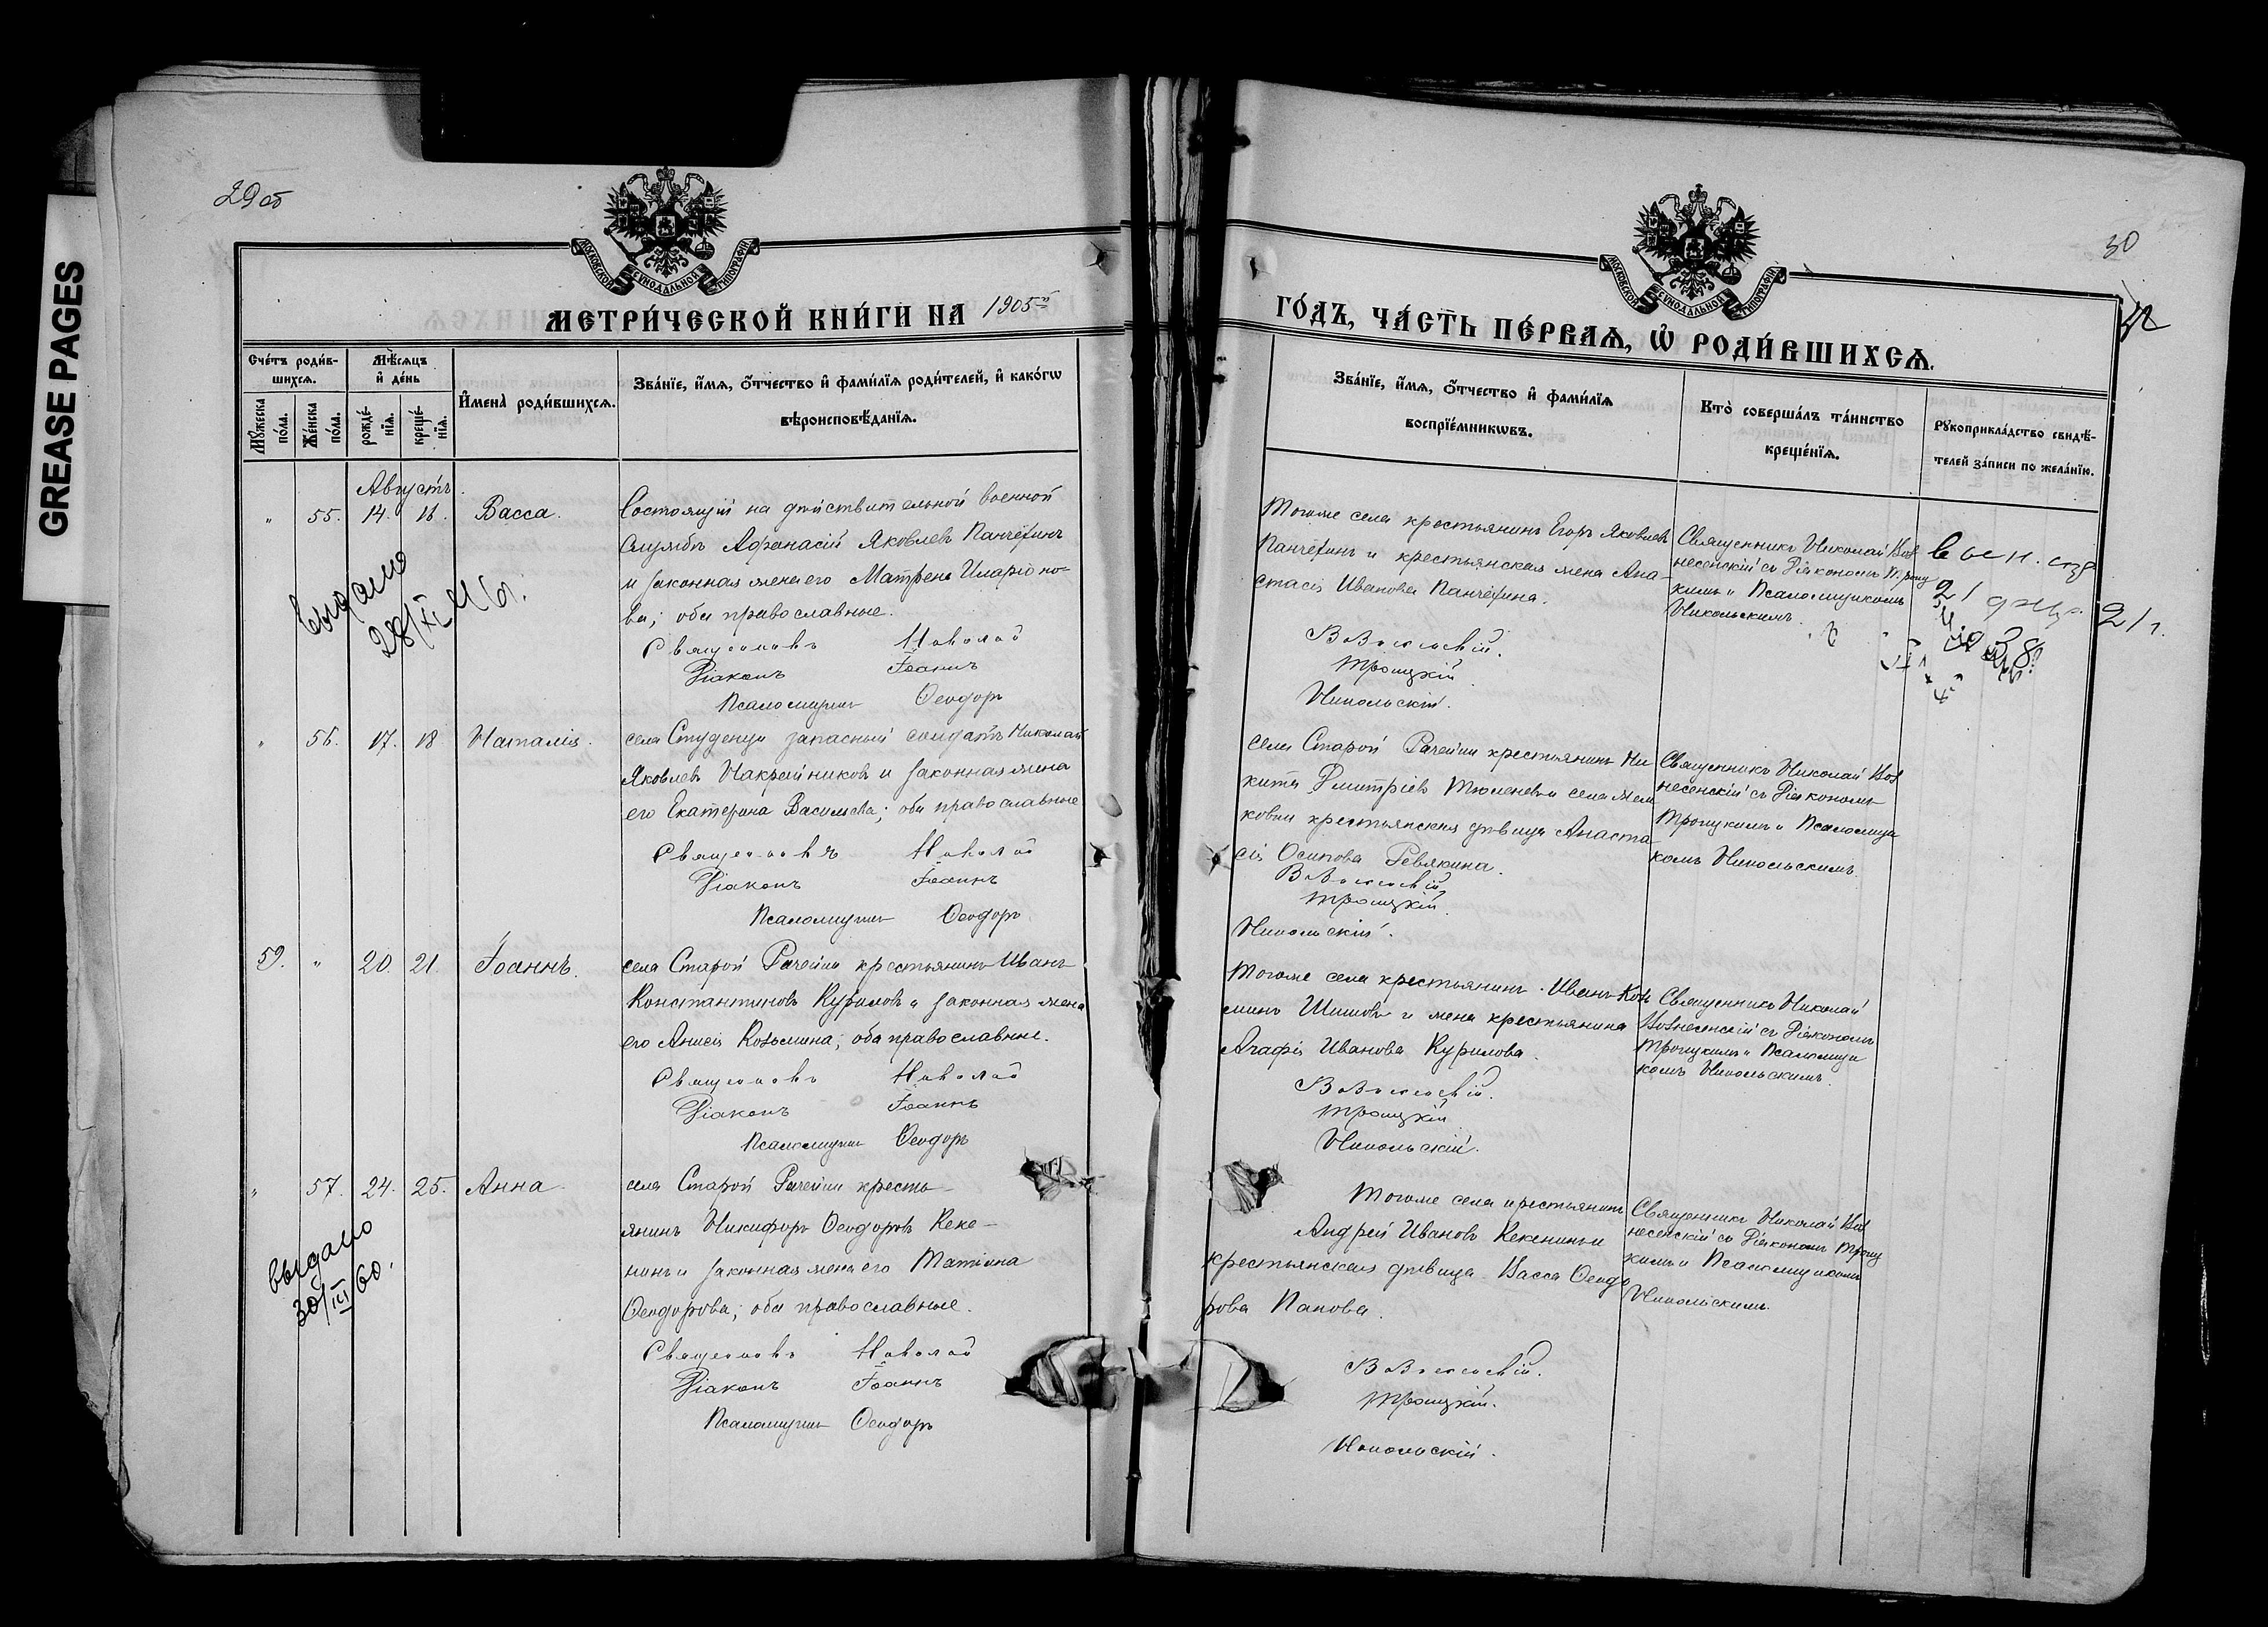 GREASE PAGES
29об
МОСКОВСКОЙ СУНОДАЛЬНОЙ ТИПОГРАФІИ
МЕТРИ́ЧЕСКОЙ КНИ́ГИ НА 1905й
Сче́тъ роди́в-
шихсѧ.
Мꙋ́жеска
по́ла.
Же́нска
по́ла.
Мѣ́сѧцъ
и҆ де́нь
рожде́-
нїѧ.
креще́-
нїѧ.
И҆мена̀ роди́вшихсѧ.
Зва́нїе, и҆́мѧ, ѻ҆́тчество и҆ фами́лїѧ роди́телей, и҆ како́гѡ
вѣроисповѣ́данїѧ.
Августъ
" 55. 14. 16. Васса.
Состоящій на дѣйствительной военной
службѣ Аѳанасій Яковлевъ Панчёхинъ
и законная жена его Матрена Иларіоно-
ва; оба православные.
Выдано
28/XI
Священникъ Николай
Діаконъ Іоаннъ
Псаломщикъ Ѳеодоръ
" 56. 17. 18 Наталія.
села Студенца запасный солдатъ Николай
Яковлевъ Накрайниковъ и законная жена
его Екатерина Васильева; оба православные
Священникъ Николай
Діаконъ Іоаннъ
Псаломщикъ Ѳеодоръ
59. " 20. 21. Іоаннъ.
села Старой Рачейки крестьянинъ Иванъ
Константиновъ Куриловъ и законная жена
его Анисія Козьмина; оба православные.
Священникъ Николай
Діаконъ Іоаннъ
Псаломщикъ Ѳеодоръ
" 57. 24. 25. Анна
села Старой Рачейки кресть-
янинъ Никифоръ Ѳеодоровъ Кеке-
нинъ и законная жена его Матіона
Ѳеодорова; оба православные.
выдано
30/III 60.
Священникъ Николай
Діаконъ Іоаннъ
Псаломщикъ Ѳеодоръ
30
МОСКОВСКОЙ СУНОДАЛЬНОЙ ТИПОГРАФІИ
ГО́ДЪ, ЧА́СТЬ ПЕ́РВАѦ, Ѡ҆ РОДИ́ВШИХСѦ.
Зва́нїе, и҆́мѧ, ѻ҆́тчество и҆ фами́лїѧ
воспрїе́мникѡвъ.
Кто̀ соверша́лъ та́инство
креще́нїѧ.
Рꙋкоприкла́дство свидѣ́-
телей за́писи по жела́нїю.
Тогоже села крестьянинъ Егоръ Яковлевъ
Панчёхинъ и крестьянская жена Ана-
стасія Иванова Панчёхина.
Вознесенскій.
Троицкій
Никольскій.
Священникъ Николай Воз
несенскій съ Діакономъ Троиц
кимъ и Псаломщикомъ
Никольскимъ.
21 21 г.
села Старой Рачейки крестьянинъ Ни
кита Дмитріевъ Тюленевъ и села
крестьянская дѣвица Анаста
сія Осипова Ревякина.
Вознесенскій
Троицкій.
Никольскій.
Священникъ Николай Воз
несенскій съ Діакономъ
Троицкимъ и Псаломщи
комъ Никольскимъ
Тогоже села крестьянинъ Иванъ Козь
минъ Шишовъ и жена крестьянина
Агафія Иванова Курилова.
Вознесенскій.
Троицкій
Никольскій.
Священникъ Николай
Вознесенскій съ Діакономъ
Троицкимъ и Псаломщи
комъ Никольскимъ.
Тогоже села крестьянинъ
Андрей Ивановъ Кекенинъ и
крестьянская дѣвица Васса Ѳеодо
рова Панова.
Вознесенскій.
Троицкій.
Никольскій.
Священникъ Николай Воз
несенскій съ Діакономъ Троиц
кимъ и Псаломщикомъ
Никольскимъ.